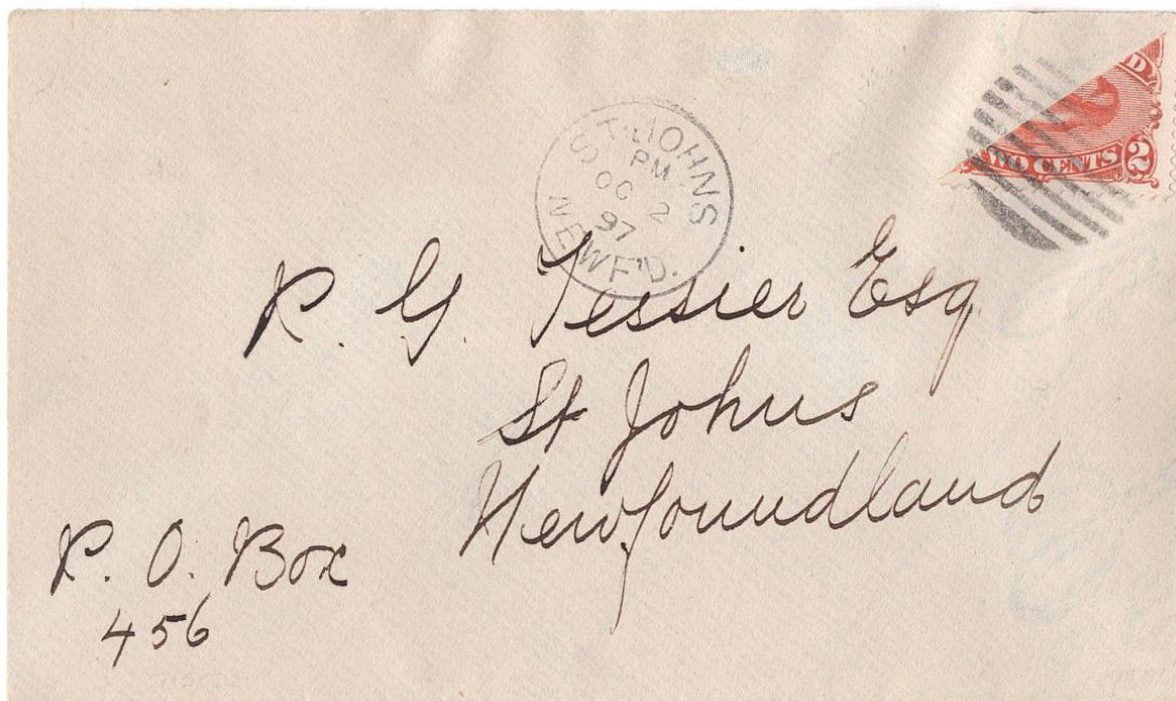 ST. JOHNS
PM
OC 2
97
NEWF'D.
D
WO CENTS 2
P. G. Tessier Esq
St Johns
Newfoundland
P. O. Box
456